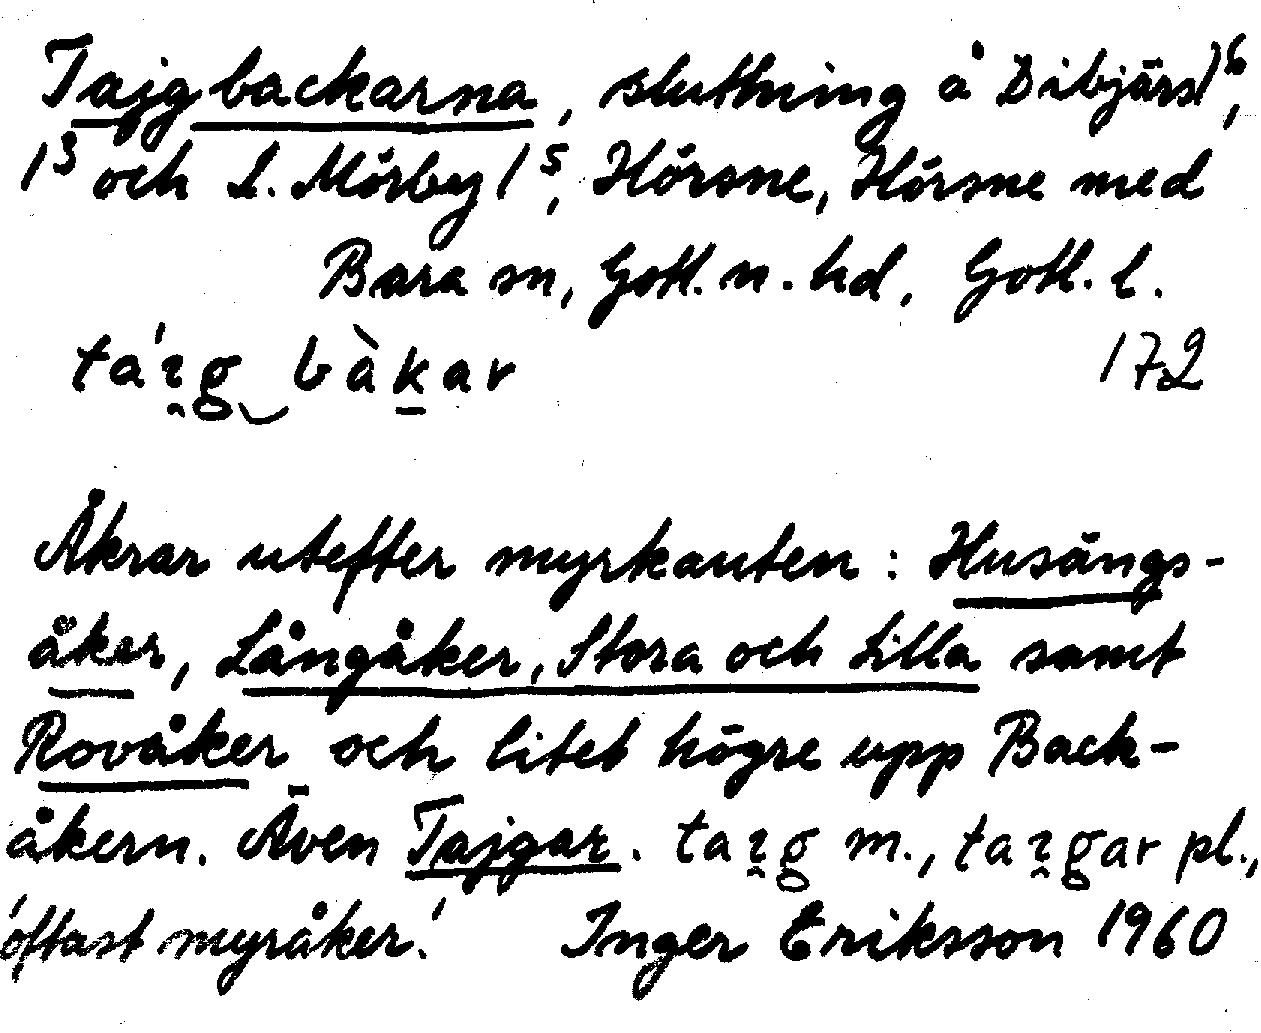 Tajgbackarna, sluttning å Dibjärs 1⁶,
1³ och L. Mörby 1⁵, Hörsne, Hörsne med
Bara sn, Gotl. n. hd, Gotl. l.
172
Åkrar utefter myrkanten: Husängs-
åker, Långåker, Stora och Lilla samt
Rovåker och litet högre upp Back-
åkern. Även Tajgar. m., pl.,
'oftast myråker.' Inger Eriksson 1960